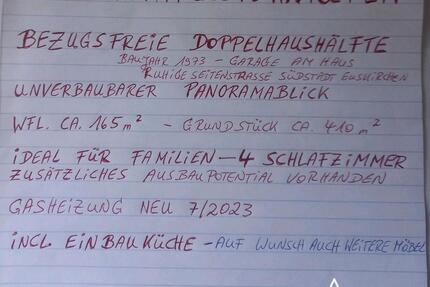 BEZUGSFREIE DOPPELHAUSHÄLFTE
BAUJAHR 1973 – GARAGE AM HAUS
RUHIGE SEITENSTRASSE SÜDSTADT EUSKIRCHEN
UNVERBAUBARER PANORAMABLICK
WFL. CA. 165 m² – GRUNDSTÜCK CA. 410 m²
IDEAL FÜR FAMILIEN – 4 SCHLAFZIMMER
ZUSÄTZLICHES AUSBAUPOTENTIAL VORHANDEN
GASHEIZUNG NEU 7/2023
INCL. EINBAUKÜCHE – AUF WUNSCH AUCH WEITERE MÖBEL